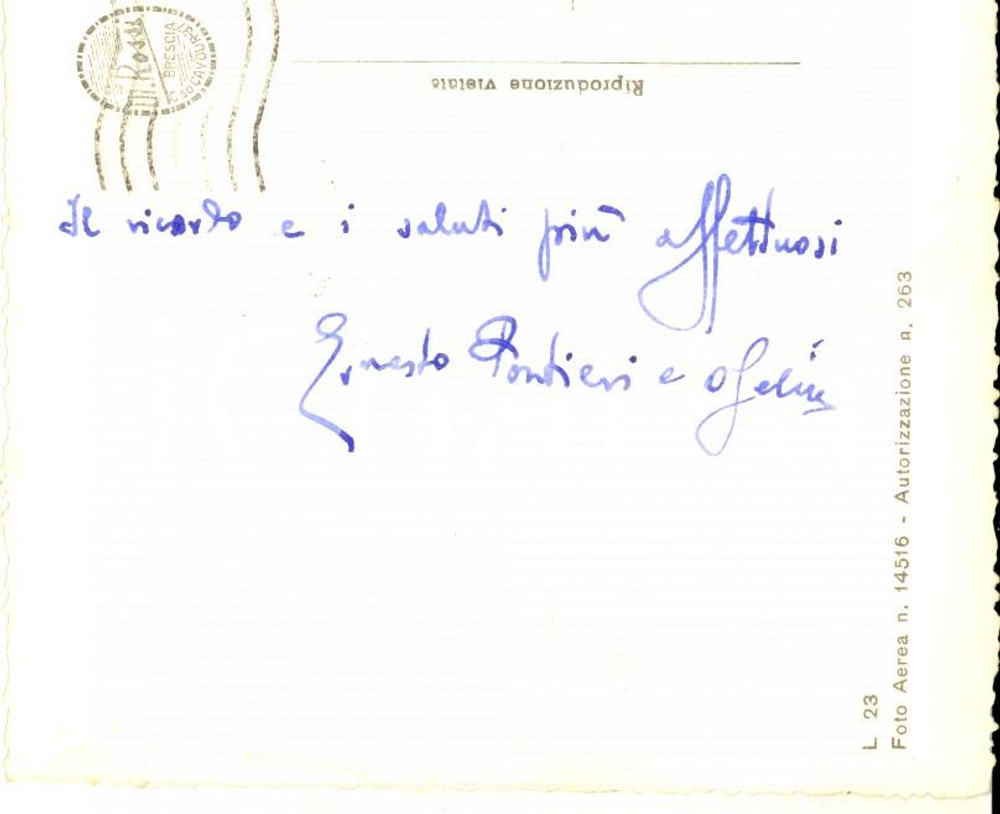 M. Rossi
BRESCIA
C.SO CAVOUR-37
Riproduzione vietata
Il ricordo e i saluti più affettuosi
Ernesto Pontieri e
L 23
Foto Aerea n. 14516 - Autorizzazione n. 263